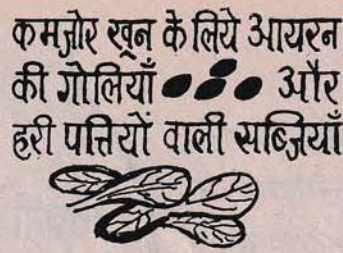 कमज़ोर खून के लिये आयरन
की गोलियाँ और
हरी पत्तियों वाली सब्ज़ियाँ